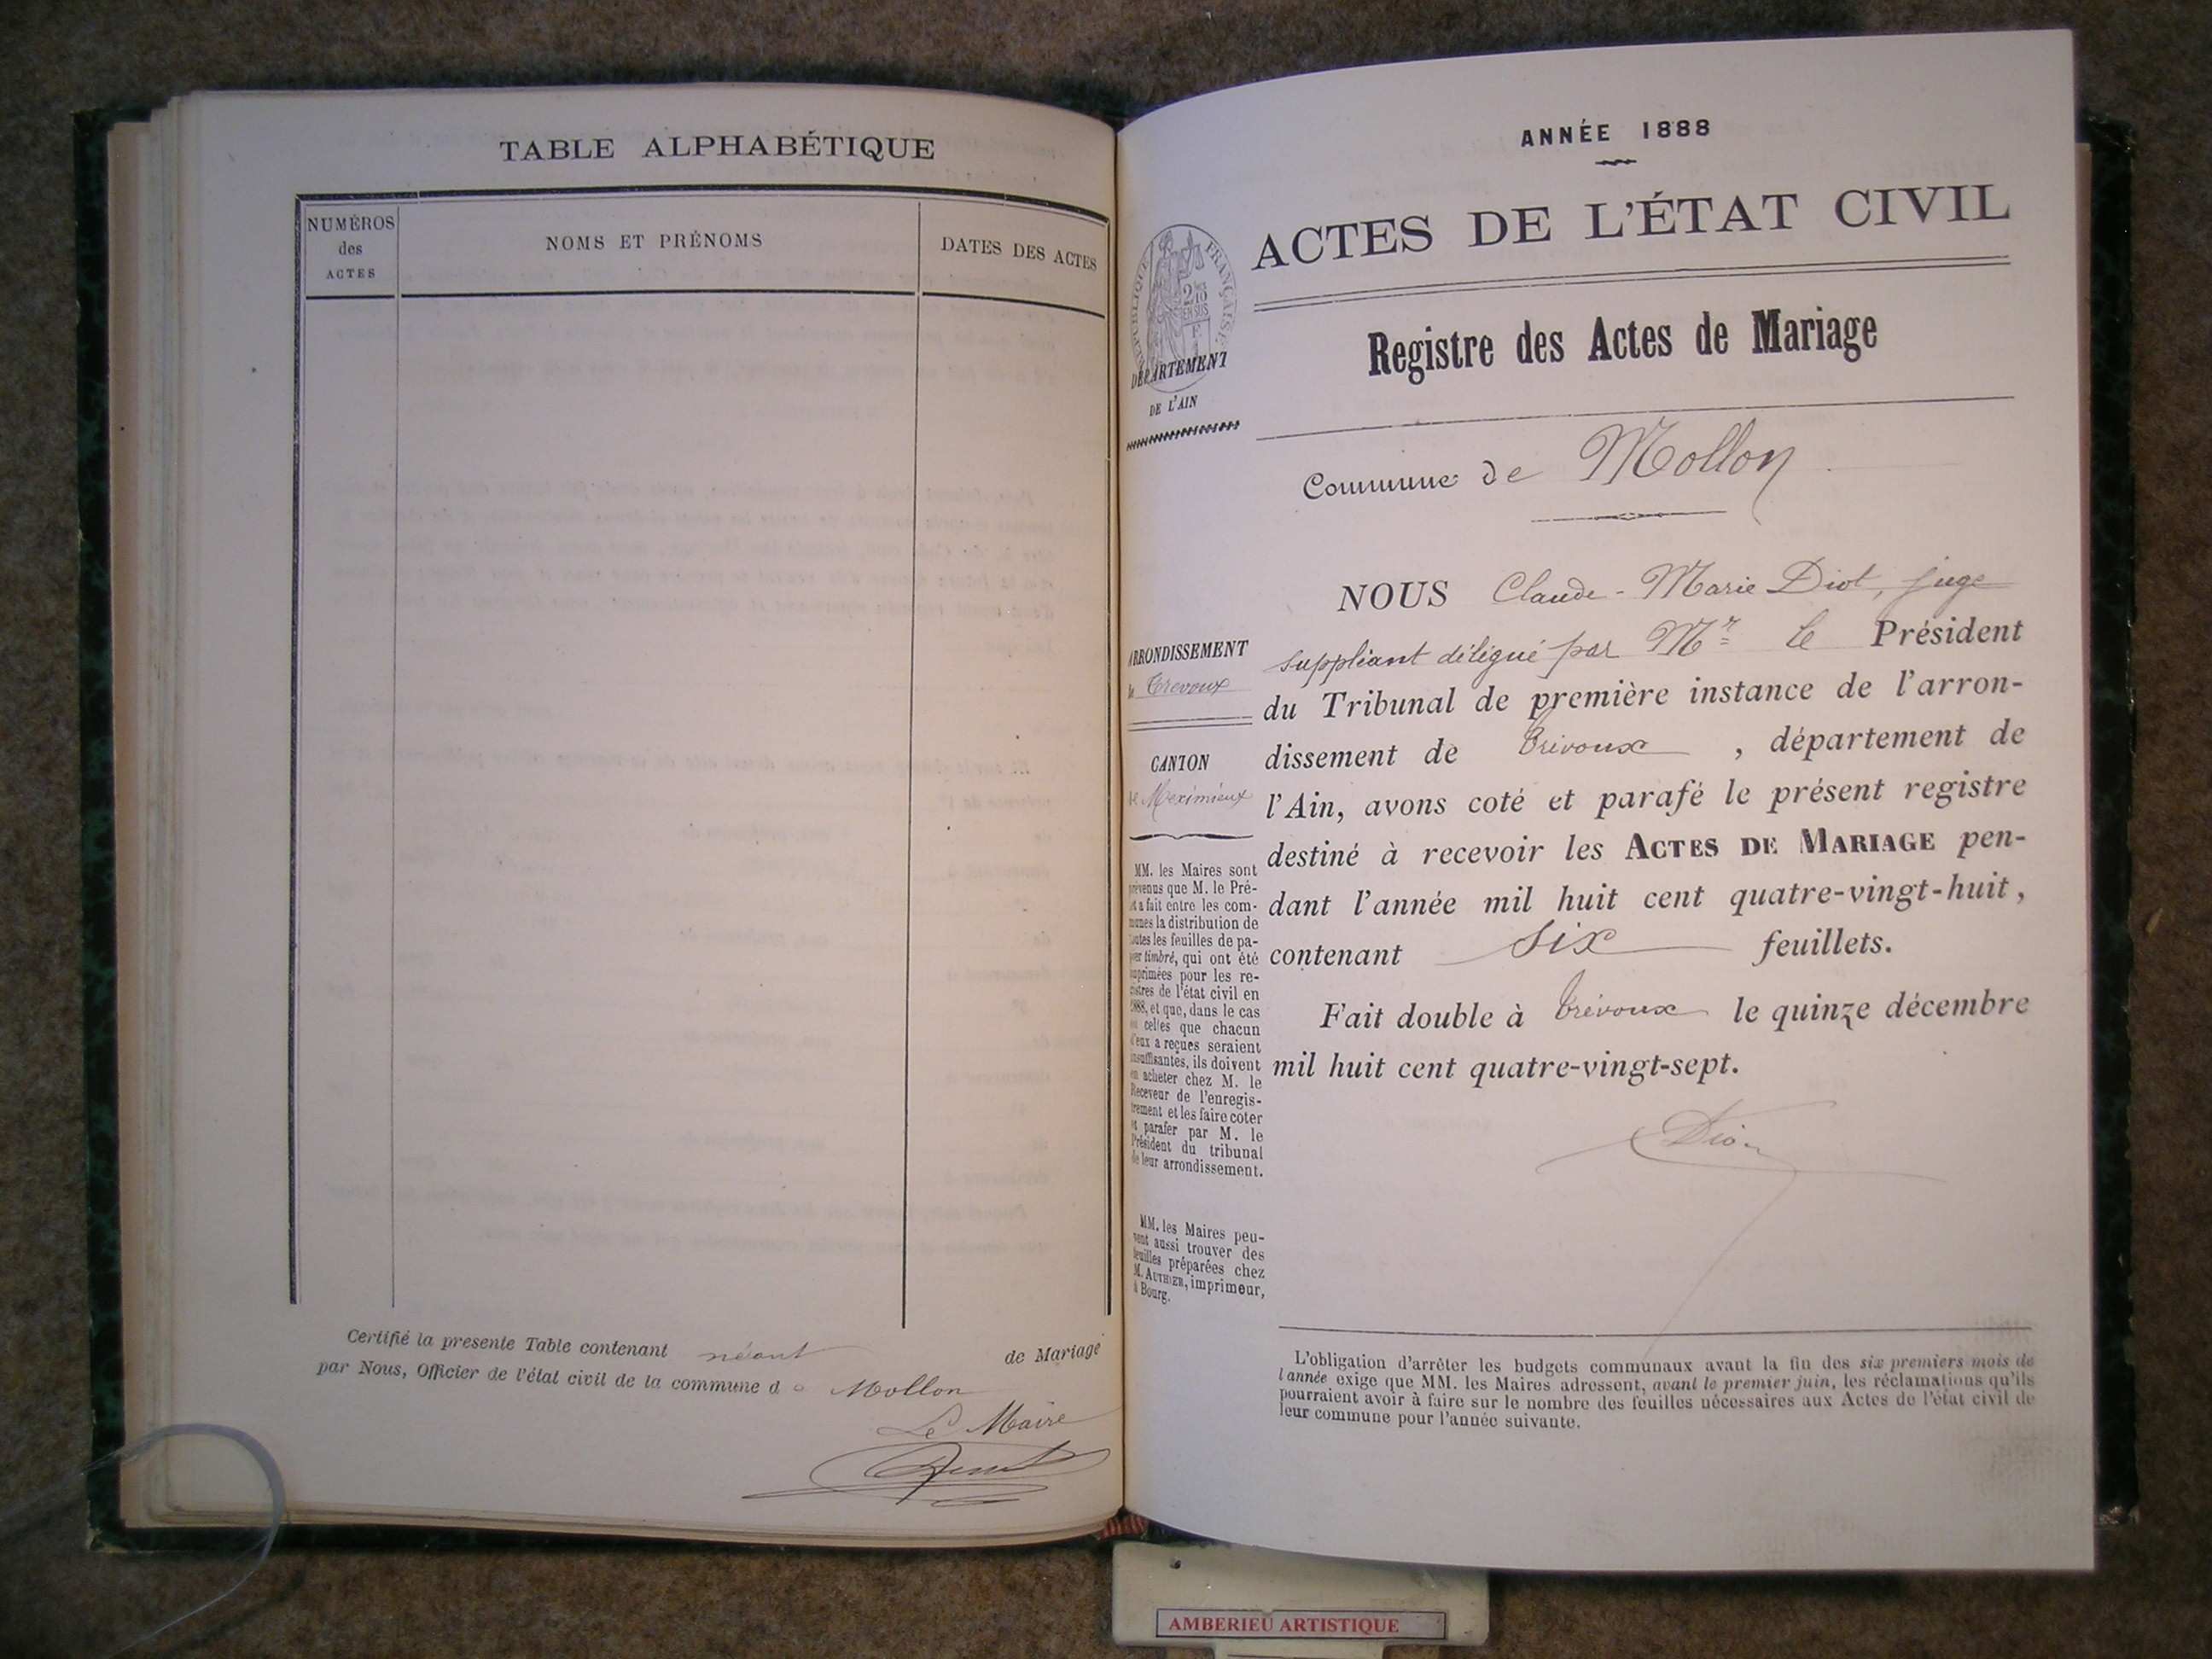 TABLE ALPHABÉTIQUE
NUMÉROS
des
ACTES
NOMS ET PRÉNOMS
DATES DES ACTES
Certifié la presente Table contenant néant de Mariage
par Nous, Officier de l'état civil de la commune de Mollon
Le Maire
ANNÉE 1888
ACTES DE L'ÉTAT CIVIL
RÉPUBLIQUE FRANÇAISE
DÉPARTEMENT
DE L'AIN
Registre des Actes de Mariage
Commune de Mollon
ARRONDISSEMENT
de Trevoux
CANTON
de Meximieux
MM. les Maires sont
prévenus que M. le Pré-
fet a fait entre les com-
munes la distribution de
toutes les feuilles de pa-
pier timbré, qui ont été
imprimées pour les re-
gistres de l'état civil en
1888, et que, dans le cas
où celles que chacun
d'eux a reçues seraient
insuffisantes, ils doivent
en acheter chez M. le
Receveur de l'enregis-
trement et les faire coter
et parafer par M. le
Président du tribunal
de leur arrondissement.
MM. les Maires peu-
vent aussi trouver des
feuilles préparées chez
M. AUTHIER, imprimeur,
à Bourg.
NOUS Claude-Marie Diot, juge
suppléant délégué par Mr le Président
du Tribunal de première instance de l'arron-
dissement de Trévoux, département de
l'Ain, avons coté et parafé le présent registre
destiné à recevoir les ACTES DE MARIAGE pen-
dant l'année mil huit cent quatre-vingt-huit,
contenant six feuillets.
Fait double à Trévoux le quinze décembre
mil huit cent quatre-vingt-sept.
Diot
L'obligation d'arrêter les budgets communaux avant la fin des six premiers mois de
l'année exige que MM. les Maires adressent, avant le premier juin, les réclamations qu'ils
pourraient avoir à faire sur le nombre des feuilles nécessaires aux Actes de l'état civil de
leur commune pour l'année suivante.
AMBERIEU ARTISTIQUE